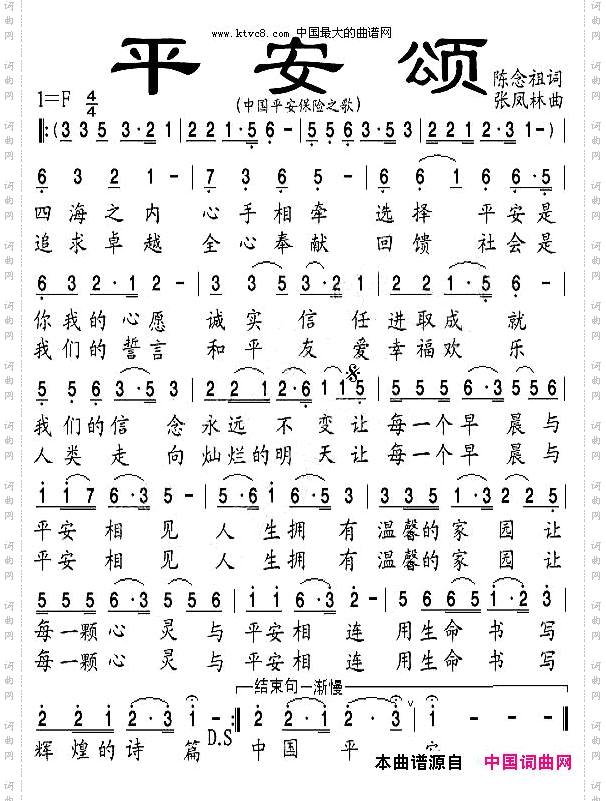 www.ktvc8.com 中国最大的曲谱网
平安颂
陈念祖词
张凤林曲
1=F 4/4
(中国平安保险之歌)
𝄆 (3 3 5 3·2 1 | 2 2 1·6 5 - | 3 3 2 3·5 6 | 2 2 1 2·3 1 -) |
6 3 2 1 - | 7 3 6 5 - | 6 6 1 6 6 5 |
四海之内 心手相牵 选择 平安是
追求卓越 全心奉献 回馈 社会是
6 3 2·1 2 - | 3 3 5 3·2 1 | 2 2 2 1·5 6 - |
你我的心愿 诚实信任进取成就
我们的誓言 和平友爱幸福欢乐
5 5 6 5·3 5 | 2 2 1 2·6 1 1 5 | 5 5 5 6·3 5 5 6 |
我们的信念永远不变让每一个早晨与
人类走向灿烂的明天让每一个早晨与
1 1 7 6·3 | 5·6 1 2 | 3 3 3 2·3 5 5 |
平安相见人生拥有温馨的家园让
平安相见人生拥有温馨的家园让
5 5 5 6·3 5 5 6 | 1 1 2 6·3 5 | 6 6 5 6 1·2 3 |
每一颗心灵与平安相连用生命书写
每一颗心灵与平安相连用生命书写
结束句一渐慢
2 2 1 2·3 1 𝄇 2 2 1 2·3 3 | 1 - - - ‖
辉煌的诗篇 D.S 中国平
本曲谱源自 中国词曲网
词曲网